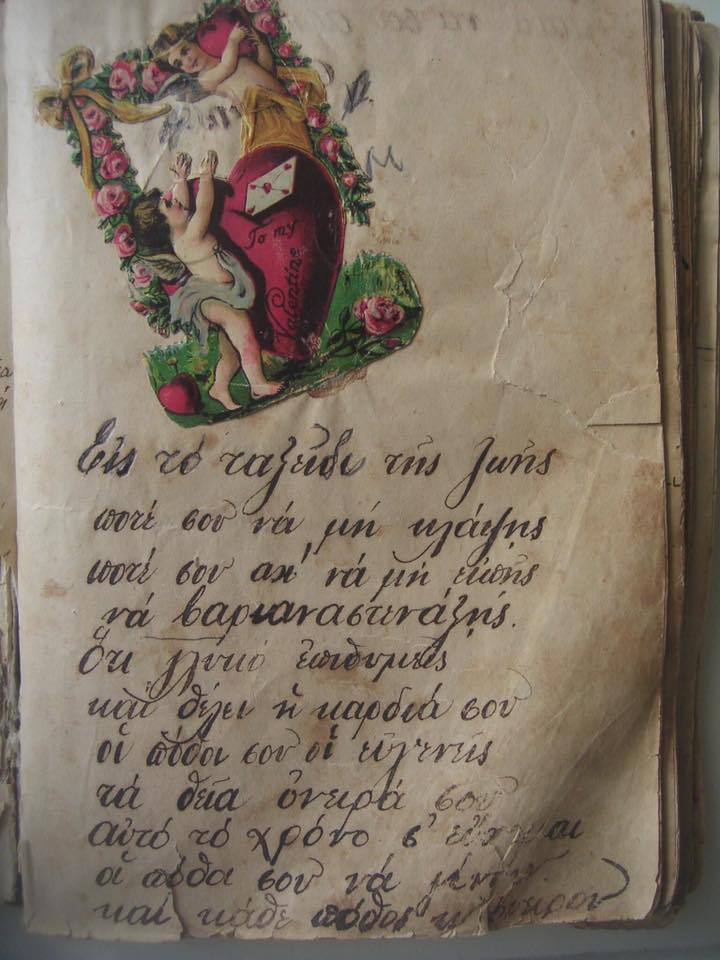 To my
Valentine
Εἰς τό ταξείδι τῆς ζωῆς
ποτέ σου νά μή κλάψῃς
ποτέ σου αχ' νά μή εἰπῇς
νά βαριαναστενάξῃς.
Ὅτι γλυκό ἐπιθυμεῖς
καί θέλει ἡ καρδιά σου
οἱ πόθοι σου οἱ εὐγενεῖς
τά θεῖα ὄνειρά σου
αὐτό τό χρόνο σ'
σου νά
καί κάθε πόθος